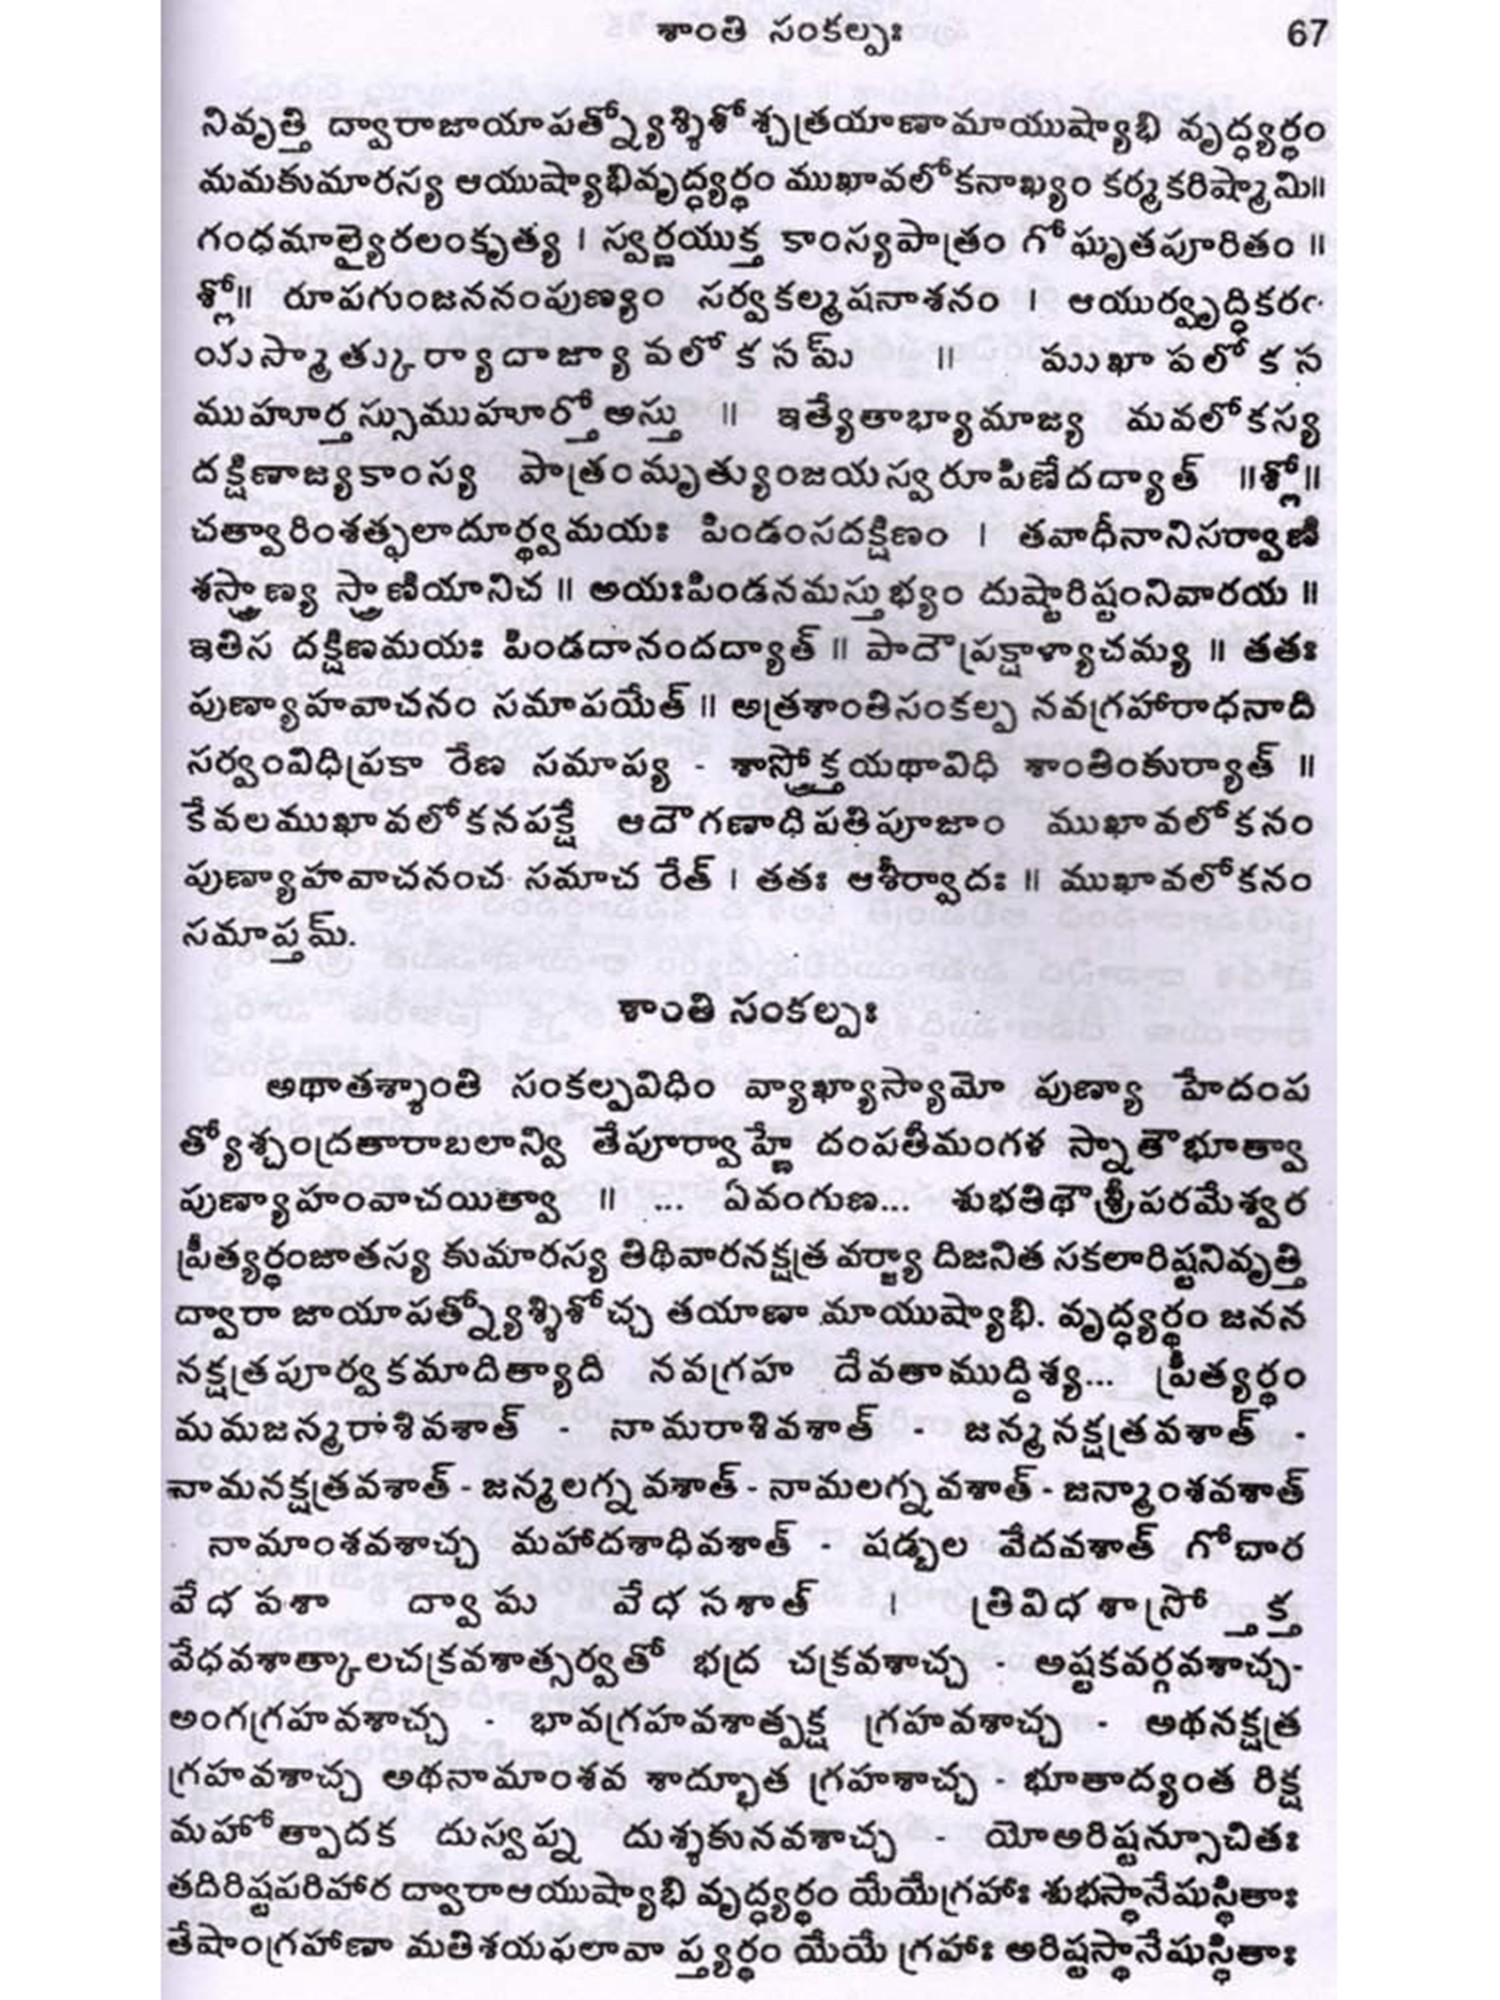 శాంతి సంకల్పః 67
నివృత్తి ద్వారాజాయాపత్న్యోశ్శిశోశ్చత్రయాణామాయుష్యాభి వృద్ధ్యర్థం
మమకుమారస్య ఆయుష్యాభివృద్ధ్యర్థం ముఖావలోకనాఖ్యం కర్మకరిష్మామి॥
గంధమాల్యైరలంకృత్య । స్వర్ణయుక్త కాంస్యపాత్రం గోఘృతపూరితం ॥
శ్లో॥ రూపగుంజననంపుణ్యం సర్వకల్మషనాశనం । ఆయుర్వృద్ధికరం
యస్మాత్కుర్యాదాజ్యావలోకనమ్ ॥ ముఖాపలోకన
ముహూర్తస్సుముహూర్తోఅస్తు ॥ ఇత్యేతాభ్యామాజ్య మవలోకస్య
దక్షిణాజ్యకాంస్య పాత్రంమృత్యుంజయస్వరూపిణేదద్యాత్ ॥శ్లో॥
చత్వారింశత్ఫలాదూర్థ్వమయః పిండంసదక్షిణం । తవాధీనానిసర్వాణి
శస్త్రాణ్య స్త్రాణియానిచ ॥ అయఃపిండనమస్తుభ్యం దుష్టారిష్టంనివారయ ॥
ఇతిస దక్షిణమయః పిండదానందద్యాత్ ॥ పాదౌప్రక్షాళ్యాచమ్య ॥ తతః
పుణ్యాహవాచనం సమాపయేత్ ॥ అత్రశాంతిసంకల్ప నవగ్రహారాధనాది
సర్వంవిధిప్రకా రేణ సమాప్య - శాస్త్రోక్తయథావిధి శాంతింకుర్యాత్ ॥
కేవలముఖావలోకనపక్షే ఆదౌగణాధిపతిపూజాం ముఖావలోకనం
పుణ్యాహవాచనంచ సమాచ రేత్ । తతః ఆశీర్వాదః ॥ ముఖావలోకనం
సమాప్తమ్.
శాంతి సంకల్పః
అథాతశ్శాంతి సంకల్పవిధిం వ్యాఖ్యాస్యామో పుణ్యా హేదంప
త్యోశ్చంద్రతారాబలాన్వి తేపూర్వాహ్ణే దంపతీమంగళ స్నాతౌభూత్వా
పుణ్యాహంవాచయిత్వా ॥ ... ఏవంగుణ... శుభతిథౌశ్రీపరమేశ్వర
ప్రీత్యర్థంజాతస్య కుమారస్య తిథివారనక్షత్ర వర్జ్యా దిజనిత సకలారిష్టనివృత్తి
ద్వారా జాయాపత్న్యోశ్శిశోచ్చ తయాణా మాయుష్యాభి. వృద్ధ్యర్థం జనన
నక్షత్రపూర్వకమాదిత్యాది నవగ్రహ దేవతాముద్దిశ్య... ప్రీత్యర్థం
మమజన్మరాశివశాత్ - నామరాశివశాత్ - జన్మనక్షత్రవశాత్ -
నామనక్షత్రవశాత్ - జన్మలగ్నవశాత్ - నామలగ్నవశాత్ - జన్మాంశవశాత్
నామాంశవశాచ్చ మహాదశాధివశాత్ - షడ్బల వేదవశాత్ గోచార
వేధవశా ద్వామ వేధనశాత్ । త్రివిధశాస్రోక్త
వేధవశాత్కాలచక్రవశాత్సర్వతో భద్ర చక్రవశాచ్చ - అష్టకవర్గవశాచ్చ-
అంగగ్రహవశాచ్చ - భావగ్రహవశాత్పక్ష గ్రహవశాచ్చ - అథనక్షత్ర
గ్రహవశాచ్చ అథనామాంశవ శాద్భూత గ్రహశాచ్చ - భూతాద్యంత రిక్ష
మహోత్పాదక దుస్వప్న దుశ్శకునవశాచ్చ - యోఅరిష్టన్సూచితః
తదిరిష్టపరిహార ద్వారాఆయుష్యాభి వృద్ధ్యర్థం యేయేగ్రహాః శుభస్థానేషుస్థితాః
తేషాంగ్రహాణా మతిశయఫలావా ప్త్యర్థం యేయే గ్రహాః అరిష్టస్థానేషుస్థితాః